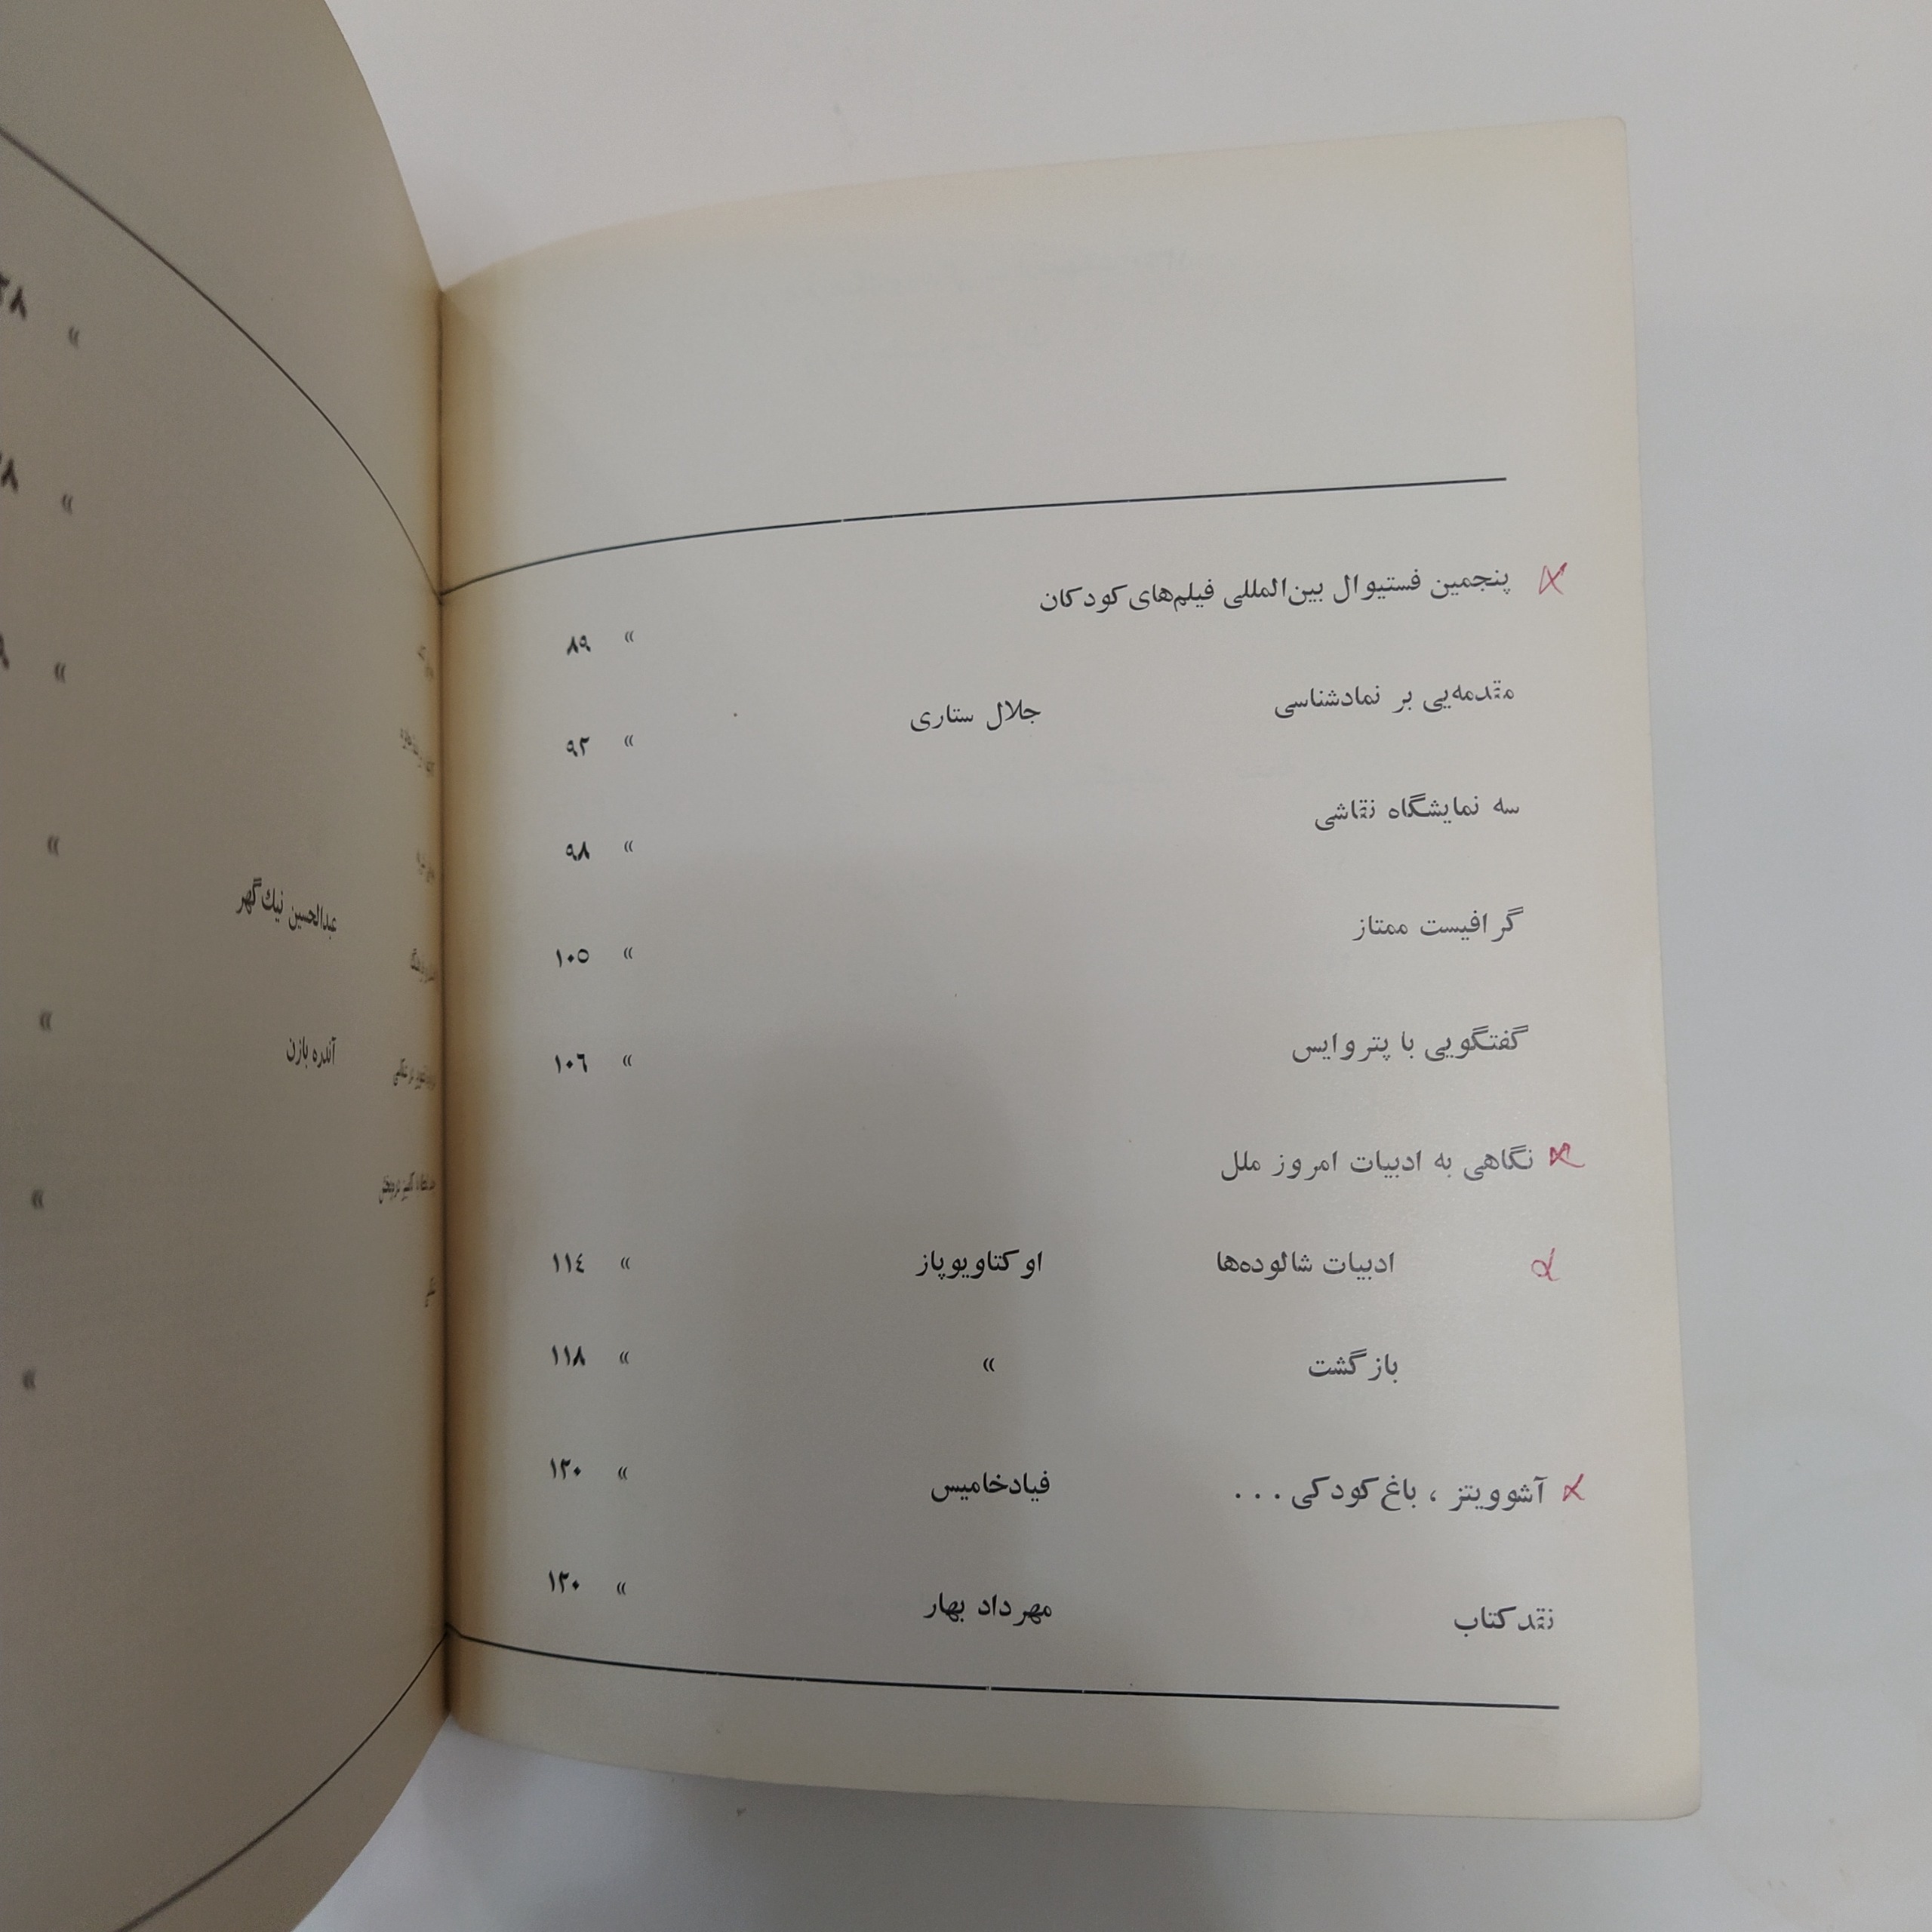 پنجمین فستیوال بین‌المللی فیلم‌های کودکان
» ۸۹
مقدمه‌یی بر نمادشناسی جلال ستاری » ۹۲
سه نمایشگاه نقاشی » ۹۸
گرافیست ممتاز » ۱۰۵
گفتگویی با پتر وایس » ۱۰۶
نگاهی به ادبیات امروز ملل
ادبیات شالوده‌ها اوکتاویوپاز » ۱۱۴
بازگشت » » ۱۱۸
آشوویتز ، باغ کودکی . . . فیادخامیس » ۱۲۰
نقد کتاب مهرداد بهار » ۱۲۰
»
»
»
»
عبدالحسین نیک‌گهر
»
آندره بازن
»
»